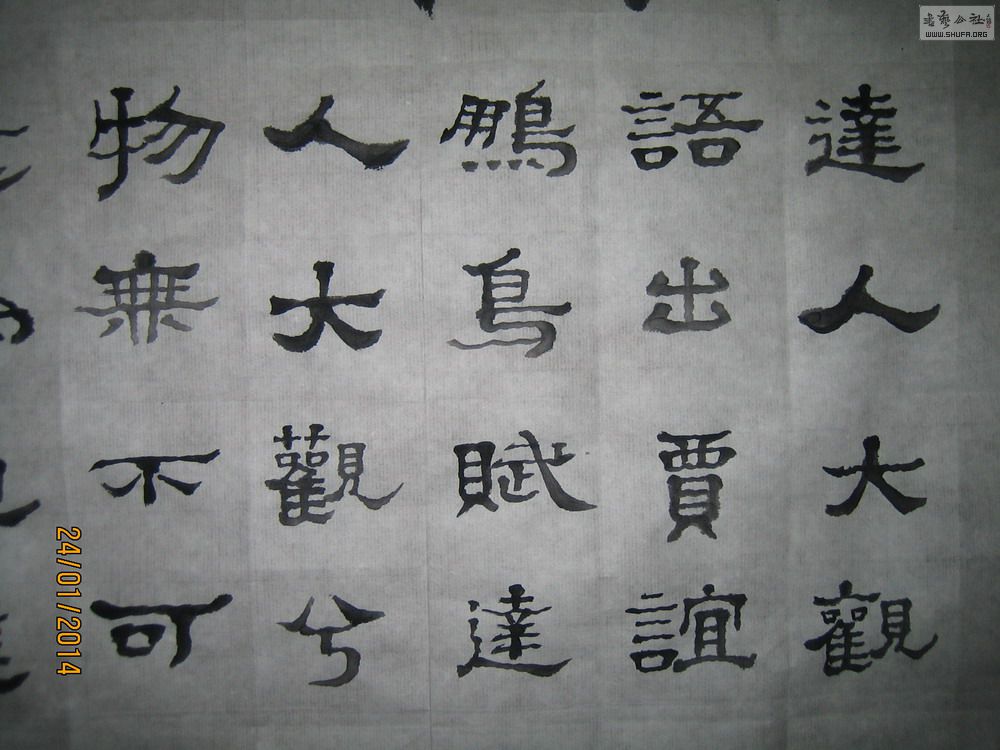 達人大觀
語出賈誼
鵬鳥賦達
人大觀兮
物無不可
24/01/2014
WWW.SHUFA.ORG